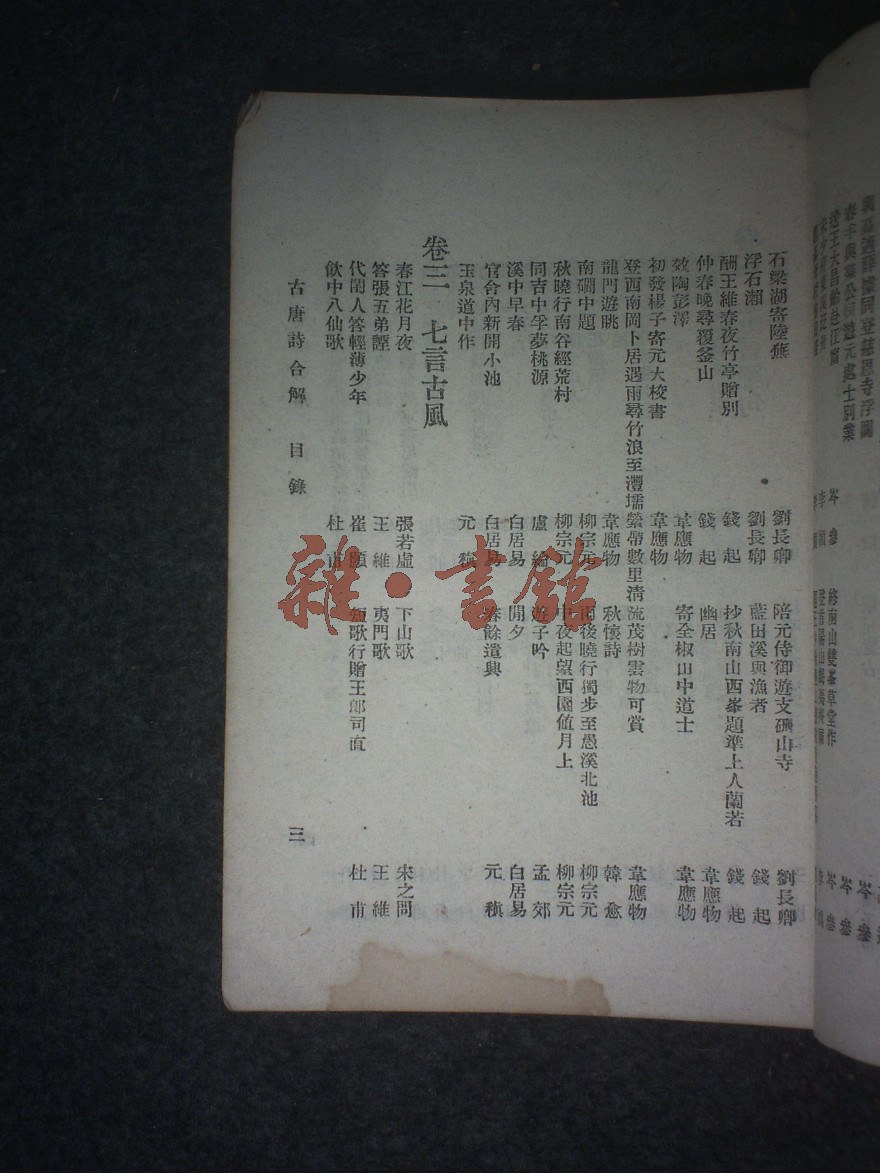 石梁湖寄陸蕪 劉長卿 陪元侍御遊支硎山寺 劉長卿
浮石瀨 劉長卿 藍田溪與漁者 錢起
酬王維春夜竹亭贈別 錢起 抄秋南山西峯題準上人蘭若 錢起
仲春晚尋覆釜山 錢起 幽居 韋應物
效陶彭澤 韋應物 寄全椒山中道士 韋應物
初發楊子寄元大校書 韋應物
登西南岡卜居遇雨尋竹浪至灃壖縈帶數里清流茂樹雲物可賞 韋應物
龍門遊眺 韋應物 秋懷詩 韓愈
南磵中題 柳宗元 雨後曉行獨步至愚溪北池 柳宗元
秋曉行南谷經荒村 柳宗元 中夜起望西園值月上 柳宗元
同吉中孚夢桃源 盧綸 遊子吟 孟郊
溪中早春 白居易 閒夕 白居易
官舍內新開小池 白居易 春餘遣興 元稹
玉泉道中作 元稹
卷三 七言古風
春江花月夜 張若虛 下山歌 宋之問
答張五弟諲 王維 夷門歌 王維
代閨人答輕薄少年 崔顥 短歌行贈王郎司直 杜甫
飲中八仙歌 杜甫
古唐詩合解 目錄 三
雜·書館
終南山雙峯草堂作
岑參
岑參
岑參